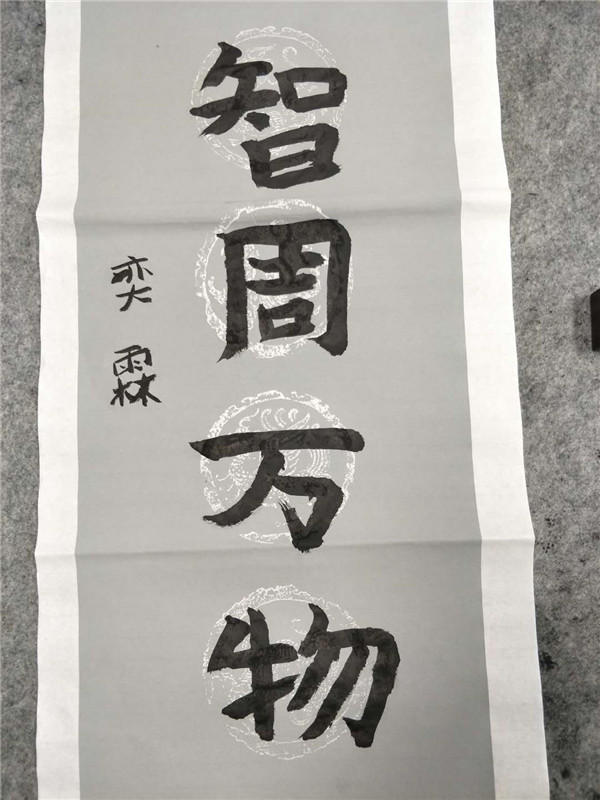 智周万物
奕霖